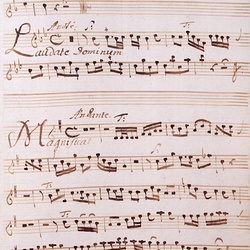 Laudate Dominum
Andante. T:
Magnificat
T: